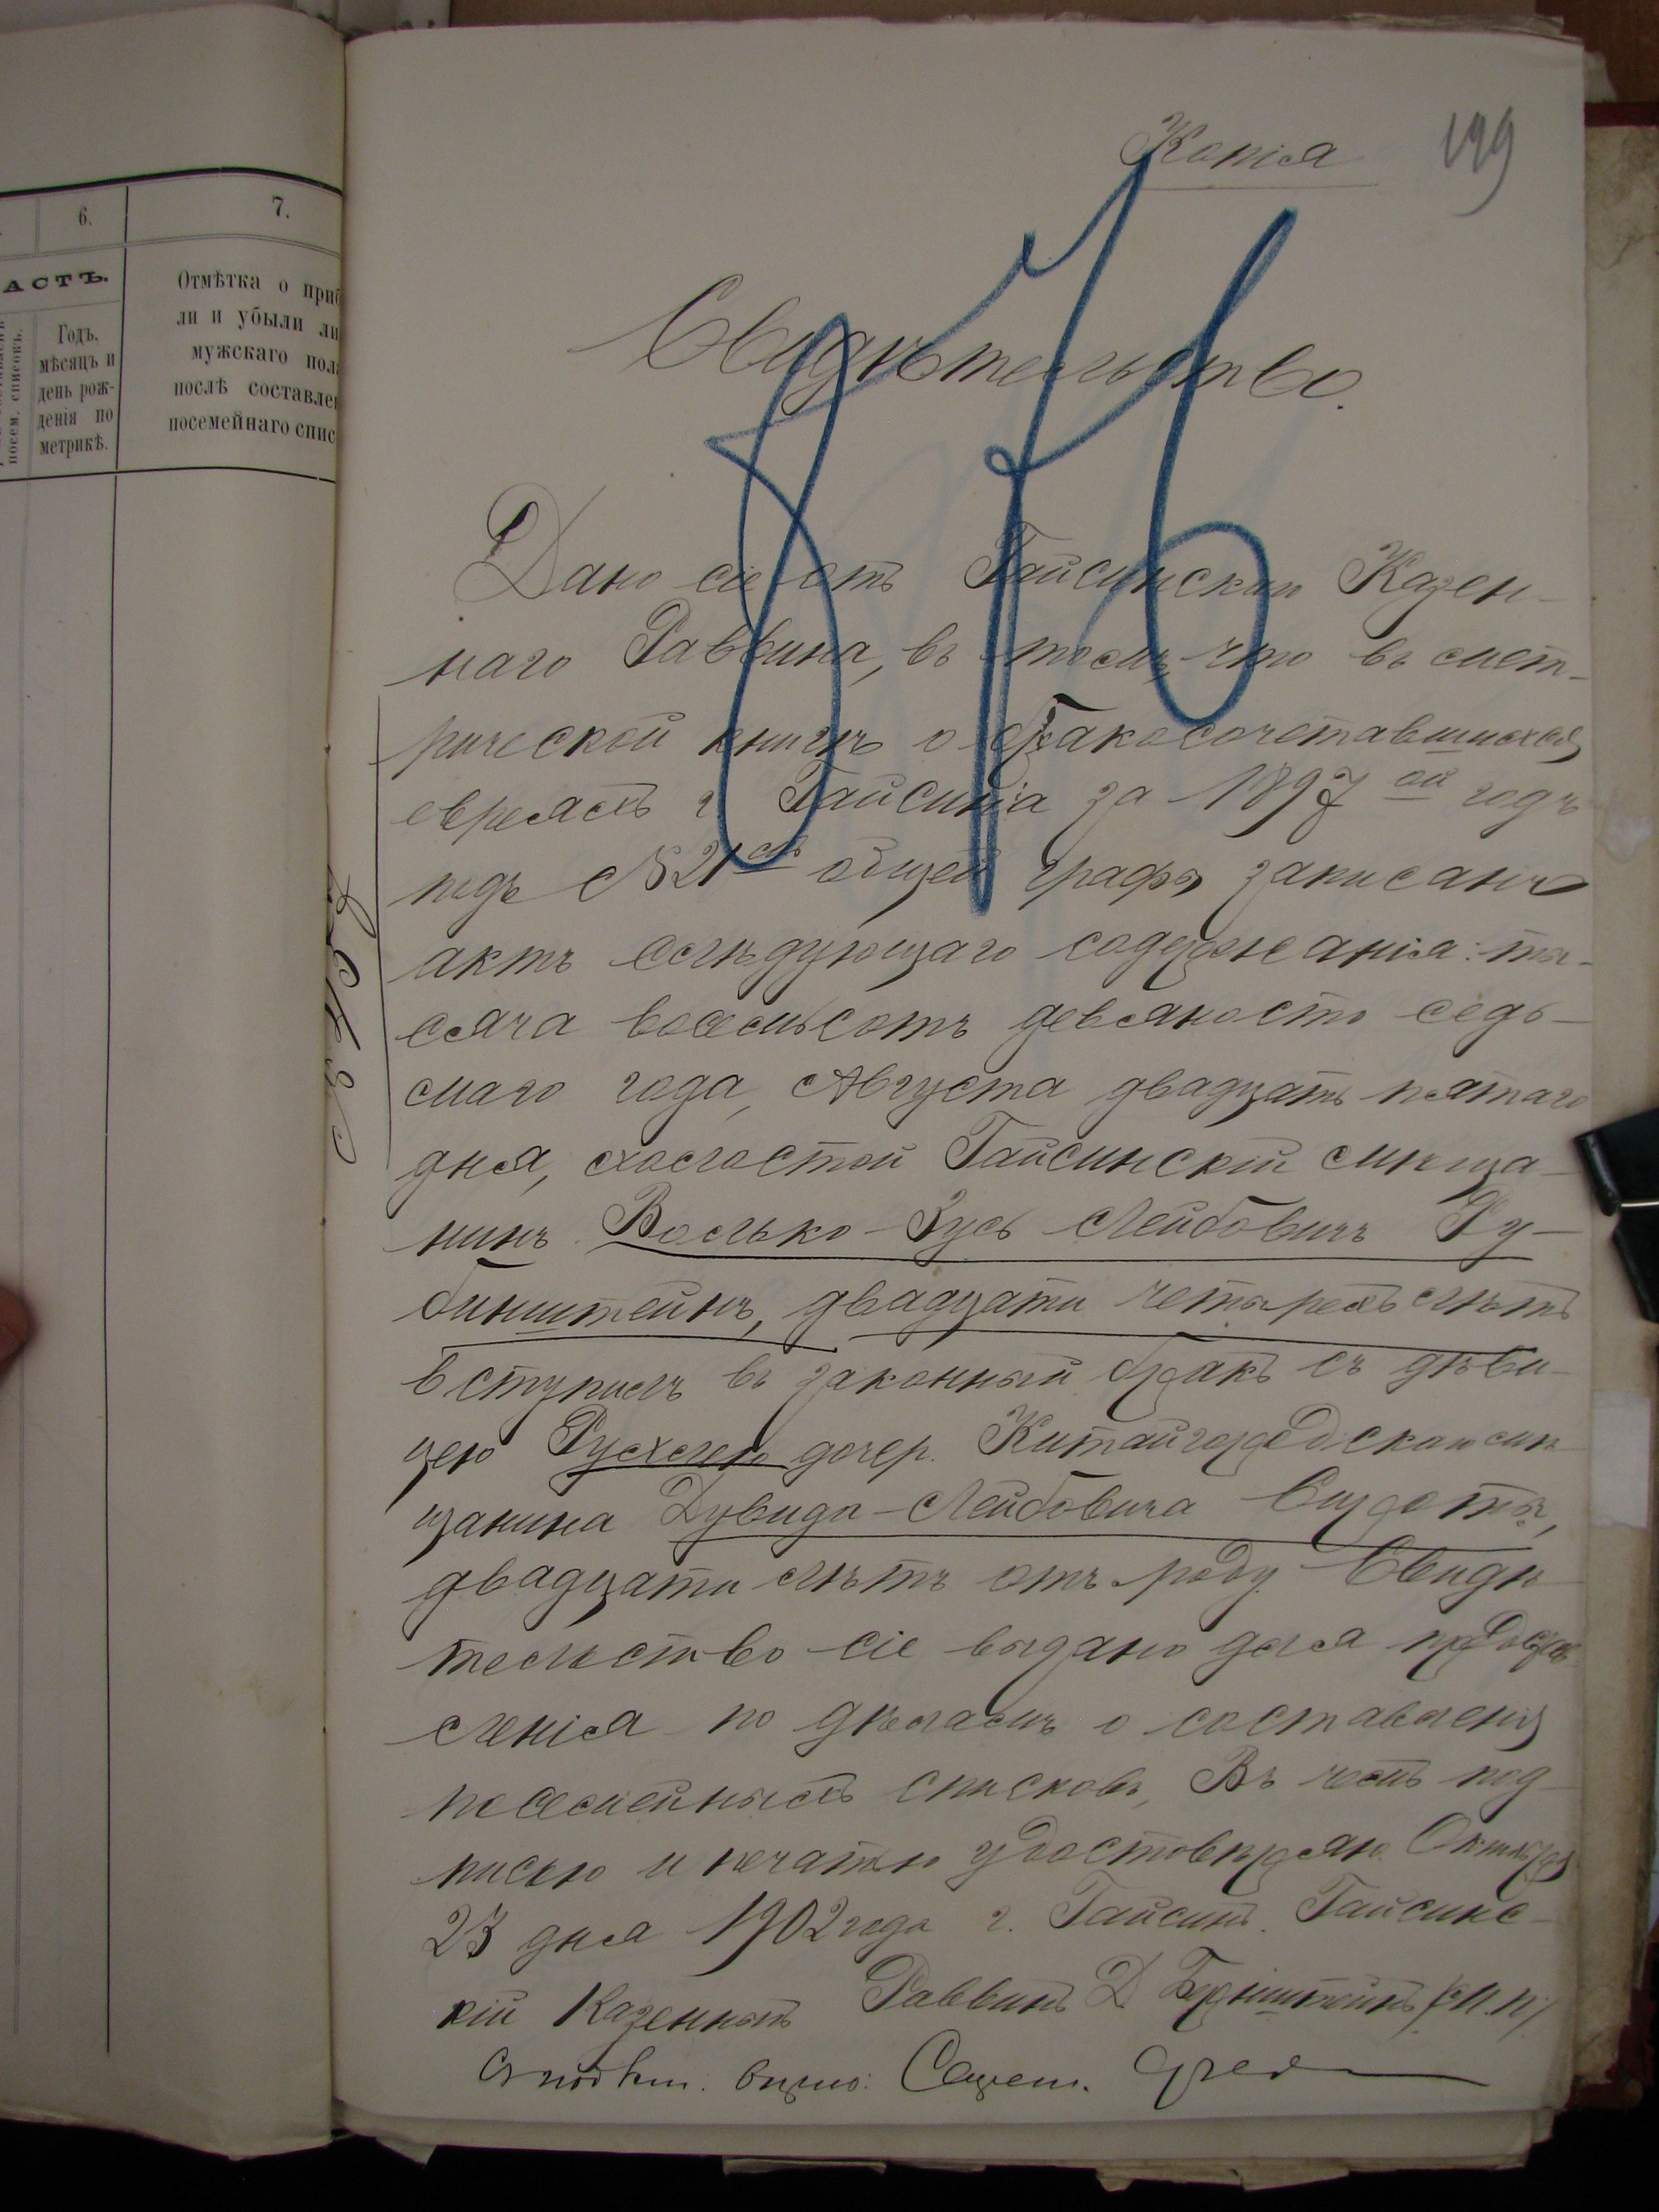 6.
7.
АСТЪ.
Годъ,
мѣсяцъ и
день рож-
денія по
метрикѣ.
посем. списокъ.
Отмѣтка о приб
ли и убыли ли
мужскаго пола
послѣ составле
посемейнаго спис
Копія
199
Свидѣтельство.
Дано сіе отъ Гайсинскаго Казен-
наго Раввина, въ томъ что въ мет-
рической книгѣ о бракосочетавшихся
евреяхъ г. Гайсина за 1897 ой годъ
подъ №21 общей графы записанъ
актъ слѣдующаго содержанія: ты-
сяча восемьсотъ девяносто седь-
маго года, Августа двадцать пятаго
дня, холостой Гайсинскій мѣща-
нинъ Волько-Зусь Лейбовичъ Ру-
бинштейнъ, двадцати четырехъ лѣтъ
вступилъ въ законный бракъ съ дѣви-
цею Рухлею дочер. Китайгородскаго мѣ
щанина Дувида-Лейбовича
двадцати лѣтъ отъ роду. Свидѣ
тельство сіе выдано для представ
ленія по дѣламъ о составленіи
посемейныхъ списковъ, Въ чемъ под
писью и печатью удостовѣряю. Октября
23 дня 1902 года г. Гайсинъ. Гайсинс-
кій Казенный Раввинъ Д. Бернштейнъ /М.П./